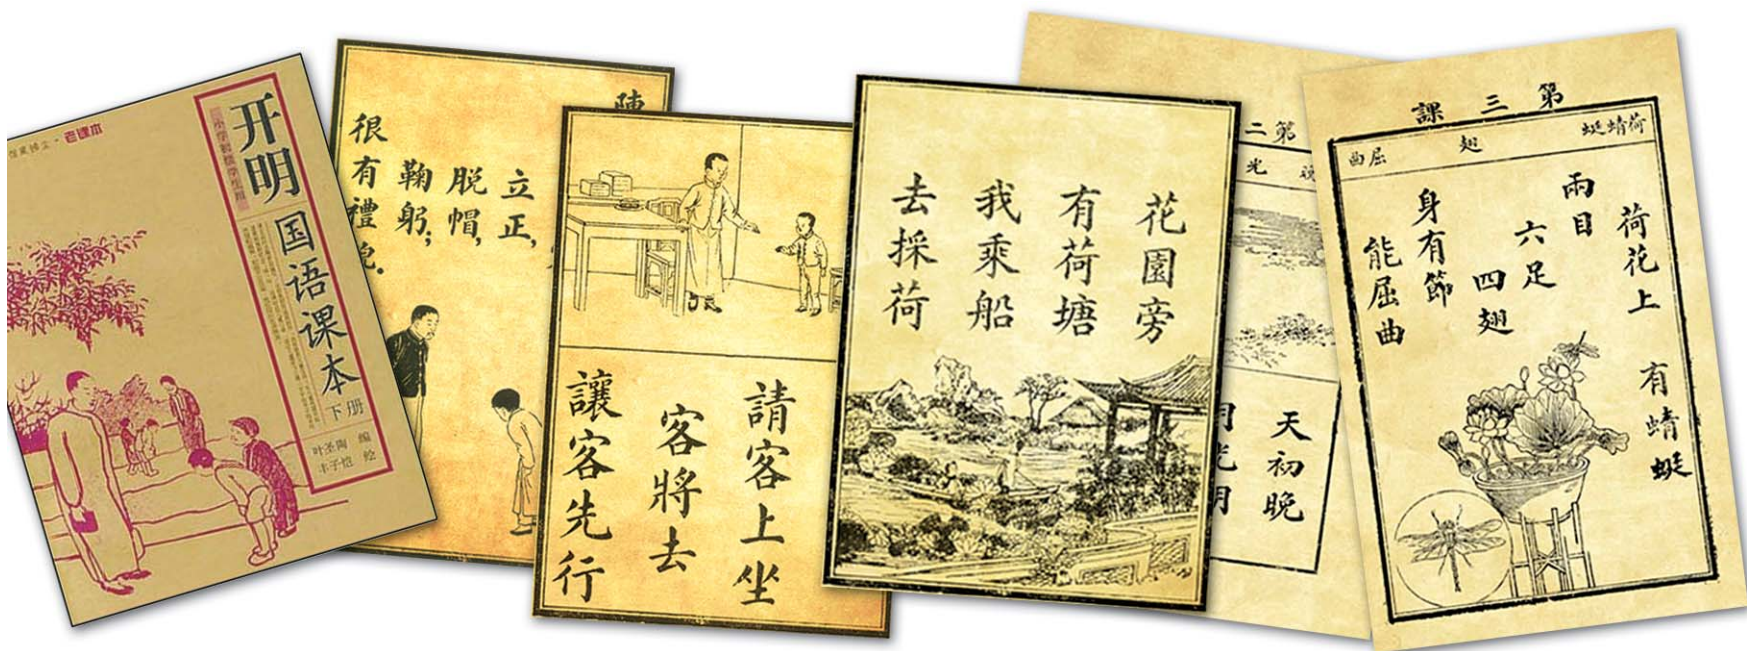 老课本
开明
国语课本
下册
小学初级学生用
叶圣陶 编
丰子恺 绘
陳
立正，
脱帽，
鞠躬；
很有禮貌．
請客上坐
客將去
讓客先行
花園旁
有荷塘
我乘船
去採荷
第二
光
天初晚
月光明
第三課
荷蜻蜓
翅
屈曲
荷花上 有蜻蜓
兩目
六足
四翅
身有節
能屈曲